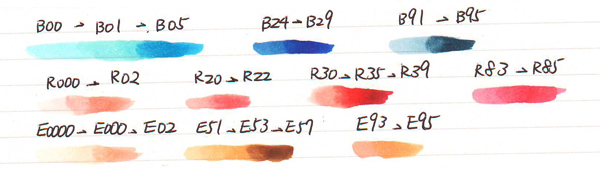 B00 → B01 → B05 B24 → B29 B91 → B95
R000 → R02 R20 → R22 R30 → R35 → R39 R83 → R85
E0000 → E000 → E02 E51 → E53 → E57 E93 → E95